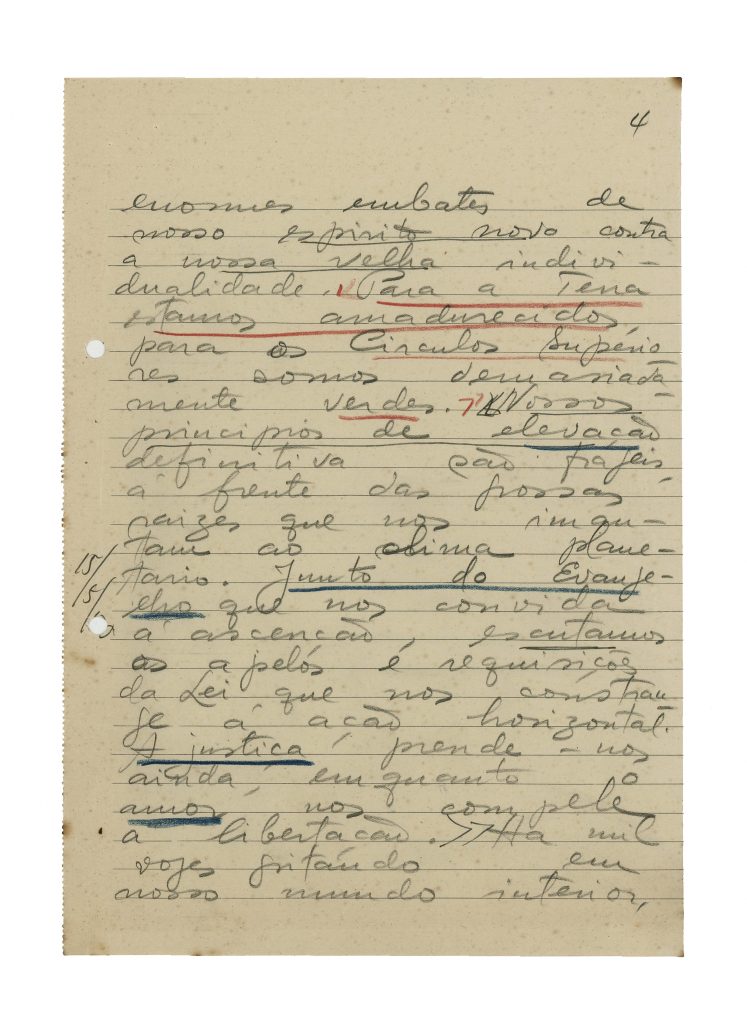 4
enormes embates de
nosso espirito novo contra
a nossa velha indivi-
dualidade. Para a Terra
estamos amadurecidos,
para os Circulos Supério
res somos demasiáda-
mente verdes. Nossos
principios de elevação
definitiva são frájeis
á frente das grossas
raizes que nos iman-
tam ao clima plane-
tario. Junto do Evanje-
lho que nos convida
á ascenção, escutamos
os apelós é requisições
da Lei que nos constran-
ge á ação horizontal.
A justiça prende-nos
ainda, emquanto o
amor nos compele
á libertação. Ha mil
vozes gritando em
nosso mundo interior,
15/
5/